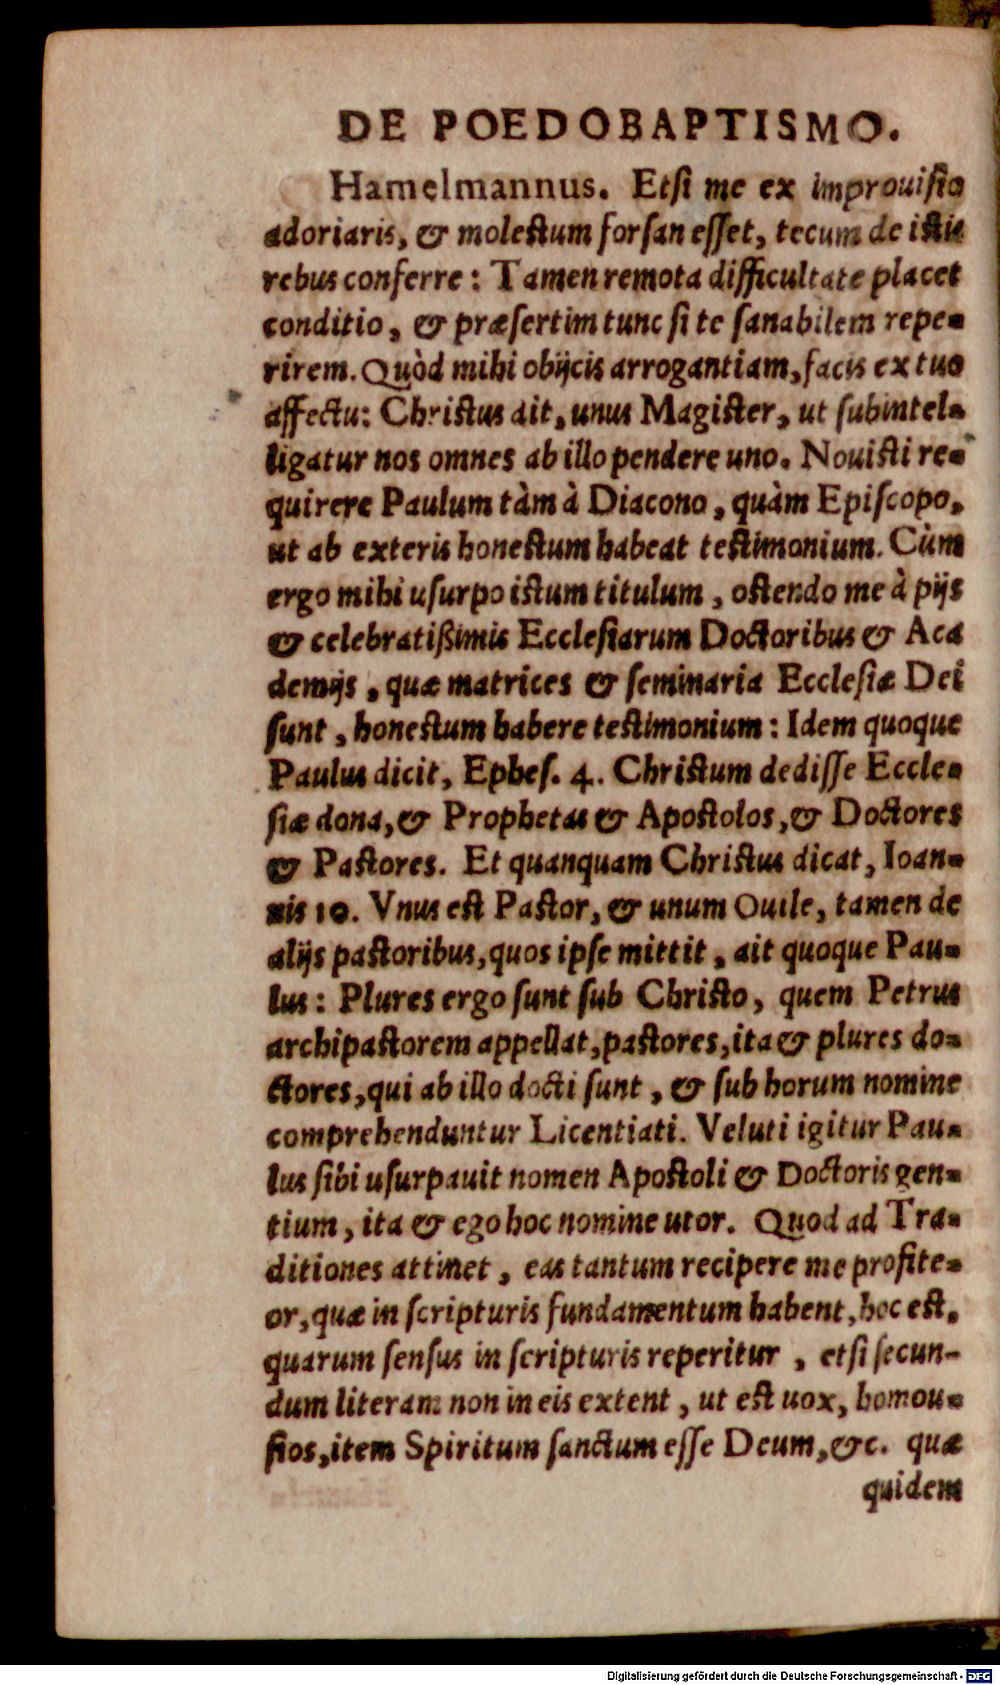 DE POEDOBAPTISMO.
Hamelmannus. Etſi me ex improuiſio
adoriaris, & moleſtum forſan eſſet, tecum de iſtis
rebus conferre: Tamen remota difficultate placet
conditio, & præſertim tunc ſi te ſanabilem repe-
rirem. Quòd mihi obijcis arrogantiam, facis ex tuo
affectu: Chriſtus ait, unus Magiſter, ut ſubintel-
ligatur nos omnes ab illo pendere uno. Nouiſti re-
quirere Paulum tàm à Diacono, quàm Epiſcopo,
ut ab exteris honeſtum habeat teſtimonium. Cùm
ergo mihi uſurpo iſtum titulum, oſtendo me à pijs
& celebratißimis Eccleſiarum Doctoribus & Aca
demijs, quæ matrices & ſeminaria Eccleſiæ Dei
ſunt, honeſtum habere teſtimonium: Idem quoque
Paulus dicit, Epheſ. 4. Chriſtum dediſſe Eccle-
ſiæ dona, & Prophetas & Apoſtolos, & Doctores
& Paſtores. Et quanquam Chriſtus dicat, Ioan-
nis 10. Vnus eſt Paſtor, & unum Ouile, tamen de
alijs paſtoribus, quos ipſe mittit, ait quoque Pau-
lus: Plures ergo ſunt ſub Chriſto, quem Petrus
archipaſtorem appellat, paſtores, ita & plures do-
ctores, qui ab illo docti ſunt, & ſub horum nomine
comprehenduntur Licentiati. Veluti igitur Pau-
lus ſibi uſurpauit nomen Apoſtoli & Doctoris gen-
tium, ita & ego hoc nomine utor. Quod ad Tra-
ditiones attinet, eas tantum recipere me profite-
or, quæ in ſcripturis fundamentum habent, hoc eſt,
quarum ſenſus in ſcripturis reperitur, etſi ſecun-
dum literam non in eis extent, ut eſt uox, homou-
ſios, item Spiritum ſanctum eſſe Deum, &c. quæ
quidem
Digitalisierung gefördert durch die Deutsche Forschungsgemeinschaft - DFG